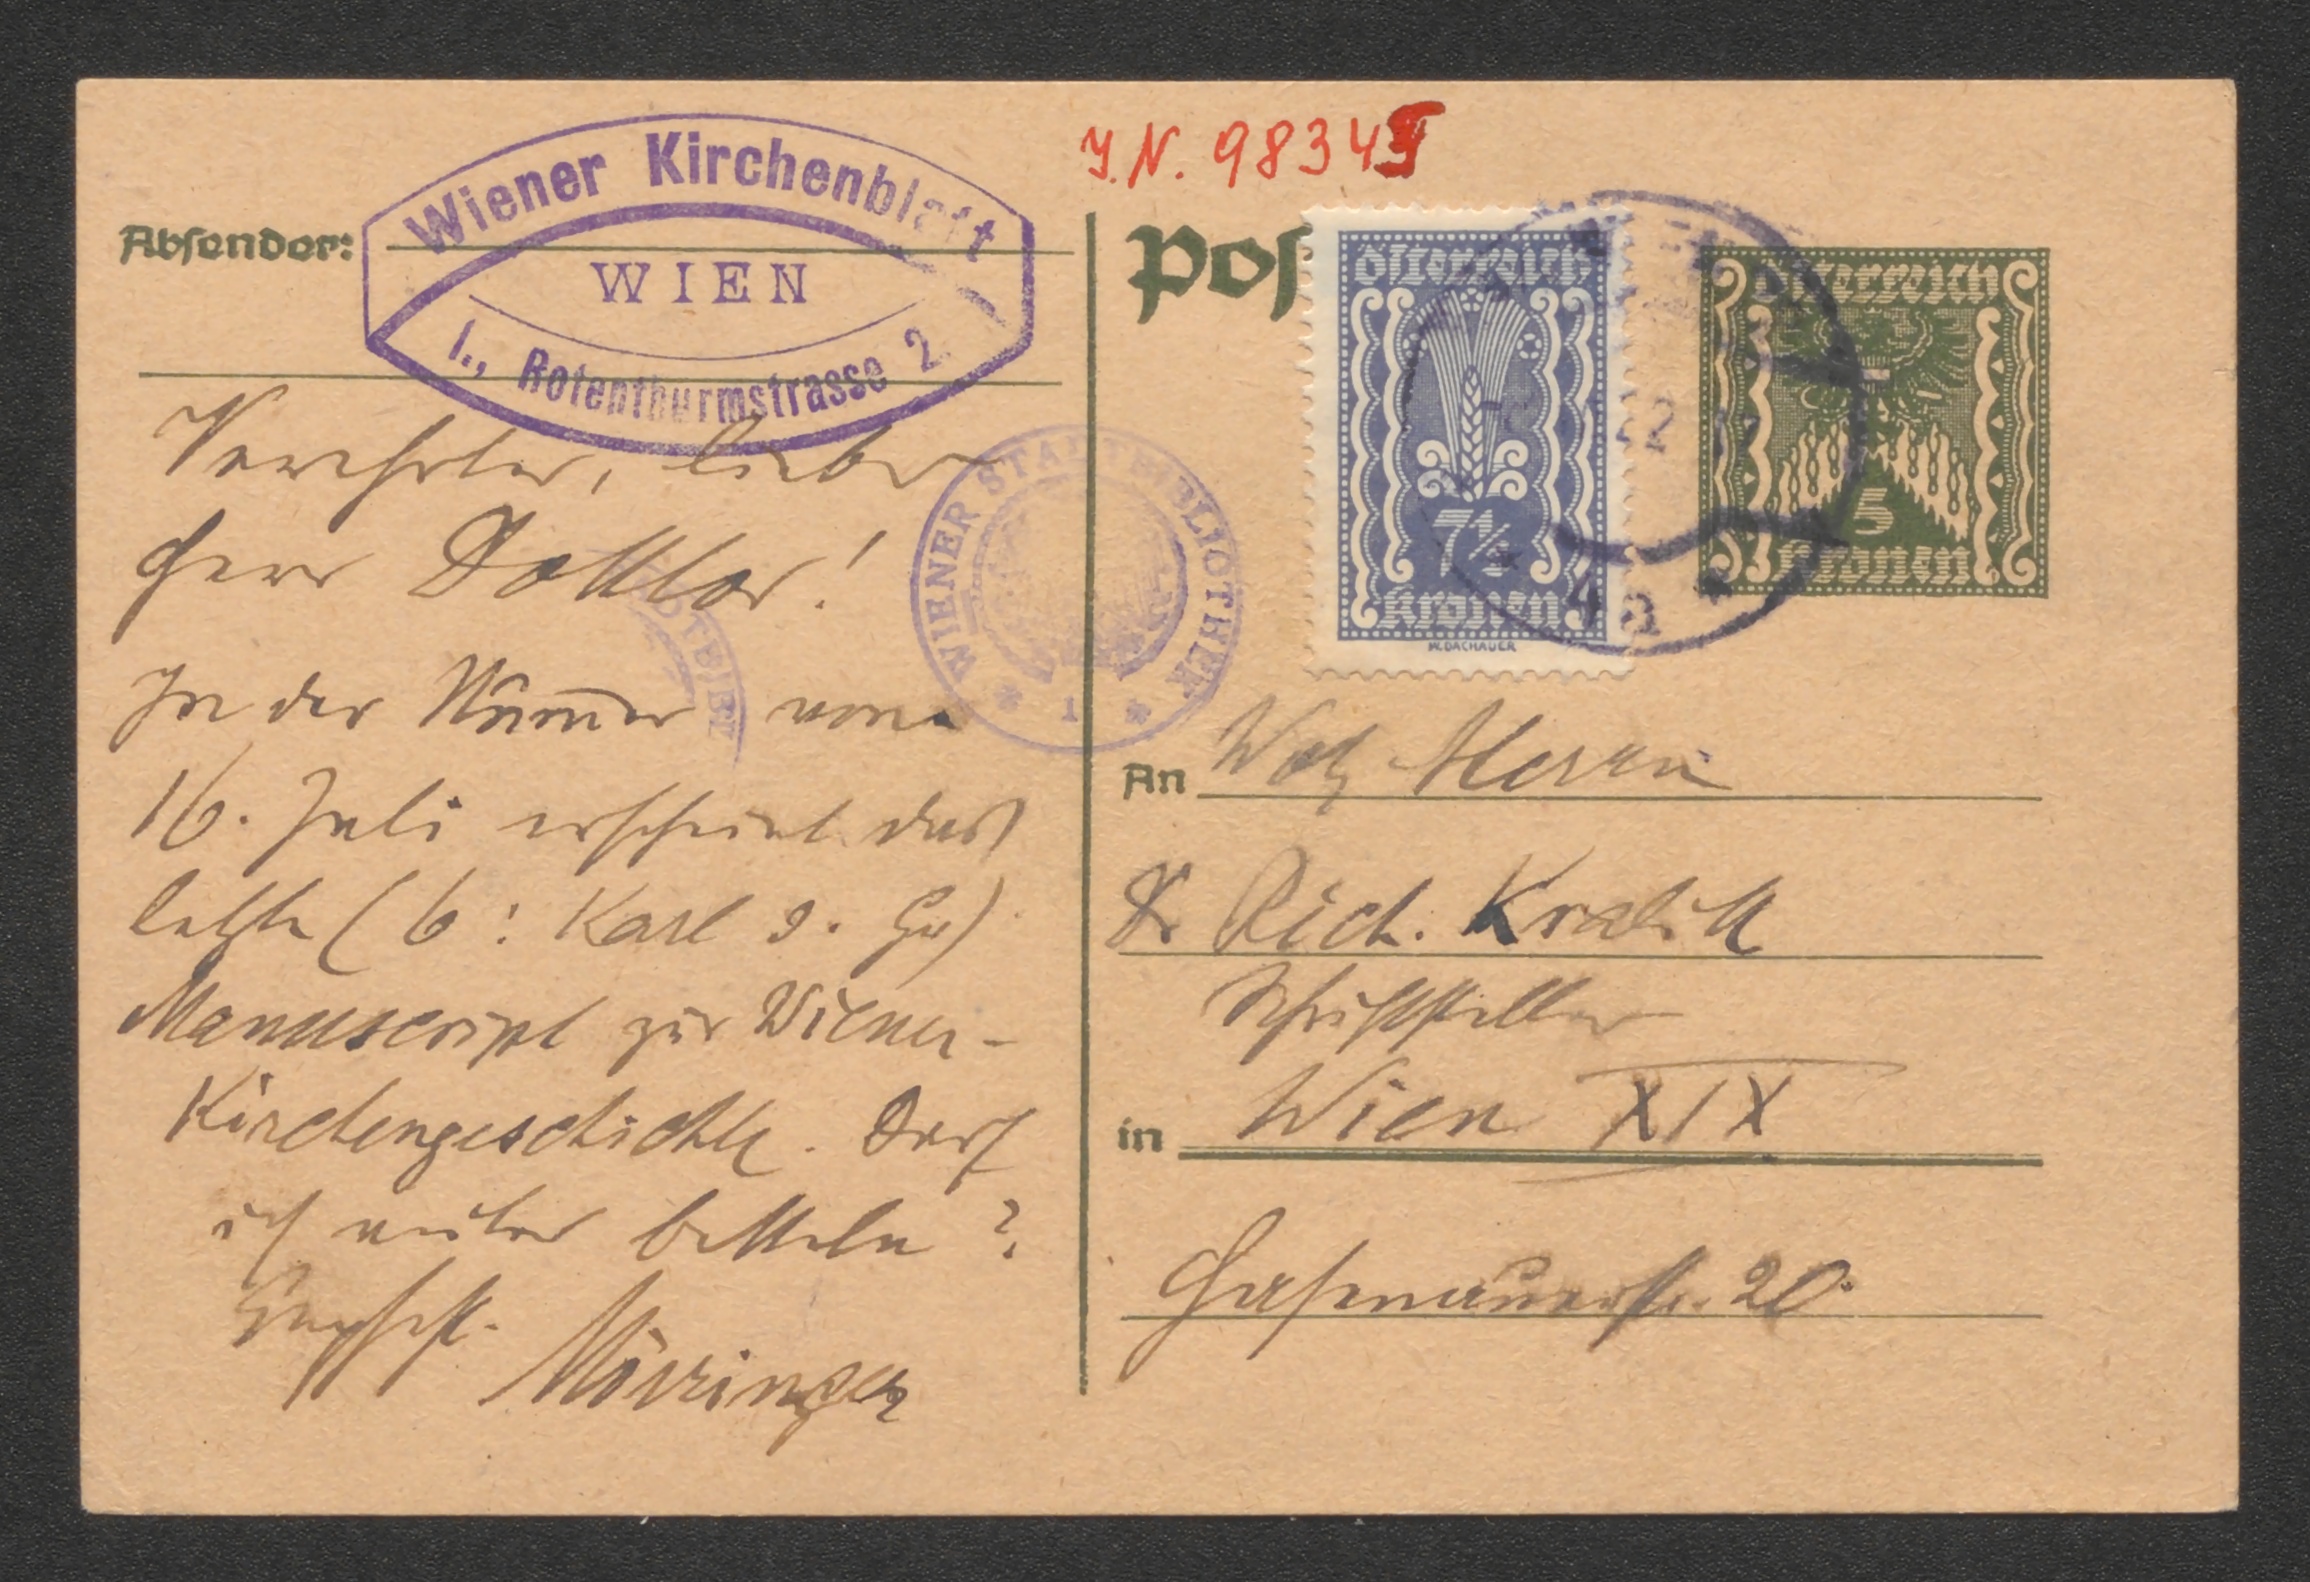 Absender:
Wiener Kirchenblatt
WIEN
I., Rotenthurmstrasse 2.
Verehrter, lieber
Herr Doktor!
In der Nummer vom
16. Juli erscheint das
letzte (6: Karl d. Gr)
Manuscript zur Wiener-
Kirchengeschichte. Darf
ich weiter betteln?
Mörzinger
WIENER STADTBIBLIOTHEK
* 1 *
J.N. 9834
Pos
Österreich
7½
Kronen
W.DACHAUER
Österreich
5
Kronen
An Herrn
Dr Rich. Kralik
Schriftsteller
in Wien XIX
Hasenauerstr. 20.